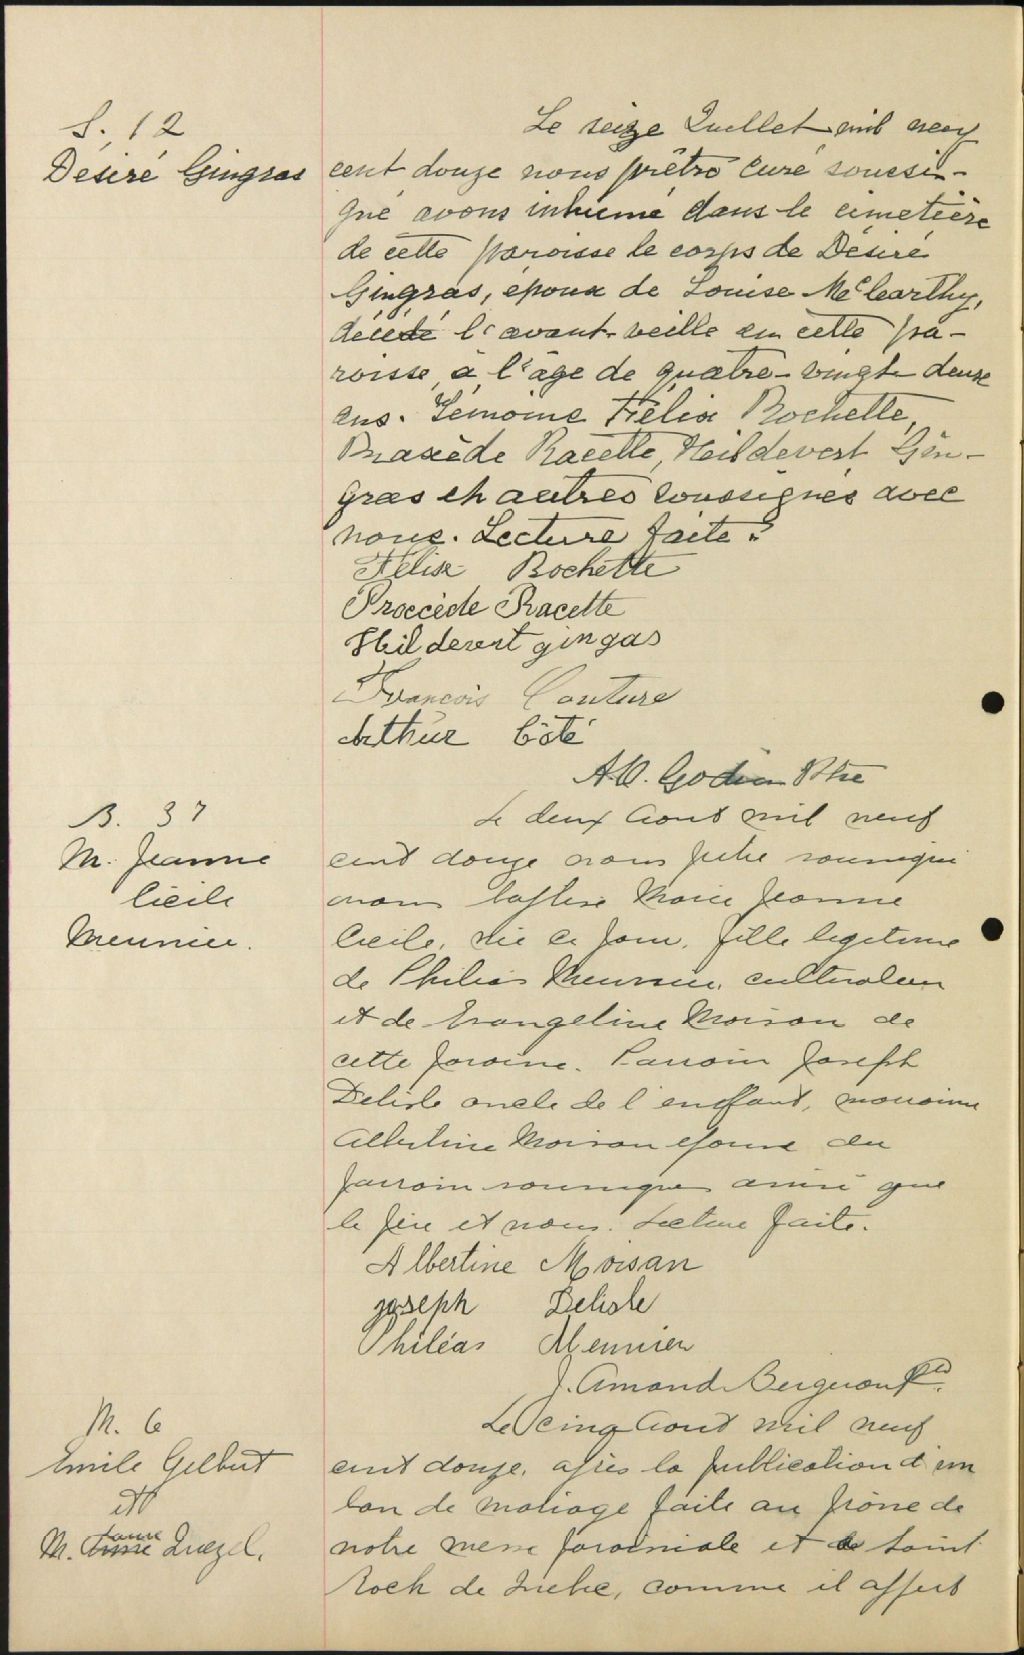 S. 12
Désiré Gingras
Le seize Juillet mil neuf
cent douze nous prêtre curé soussi-
gné avons inhumé dans le cimetière
de cette paroisse le corps de Désiré
Gingras, époux de Louise McCarthy,
décédé l'avant-veille en cette pa-
roisse, à l'âge de quatre-vingt deux
ans. Témoins Félix Rochette,
Praxède Racette, Heildevert Gin-
gras et autres soussignés avec
nous. Lecture faite.
Félix Rochette
Proccède Racette
Hildevert gingas
François Couture
Arthur Côté
A.O. Godin Ptre
B. 37
M. Jeanne
Cécile
Meunier.
Le deux Aout mil neuf
cent douze nous prêtre soussigné
avons baptisé Marie Jeanne
Cécile, née ce jour, fille legitime
de Philéas Meunier, cultivateur
et de Evangeline Moisan de
cette paroisse. Parrain Joseph
Delisle oncle de l'enffant, marraine
Albertine Moisan épouse du
parrain soussignés ainsi que
le père et nous. Lecture faite.
Albertine Moisan
joseph Delisle
Philéas Meunier
J. Amand Bergeron
M. 6
Emile Gelbert
et
M. Laure
Le cinq Aout mil neuf
cent douze, après la publication d'un
ban de mariage faite au prône de
notre messe paroissiale et de Saint
Roch de Quebec, comme il appert